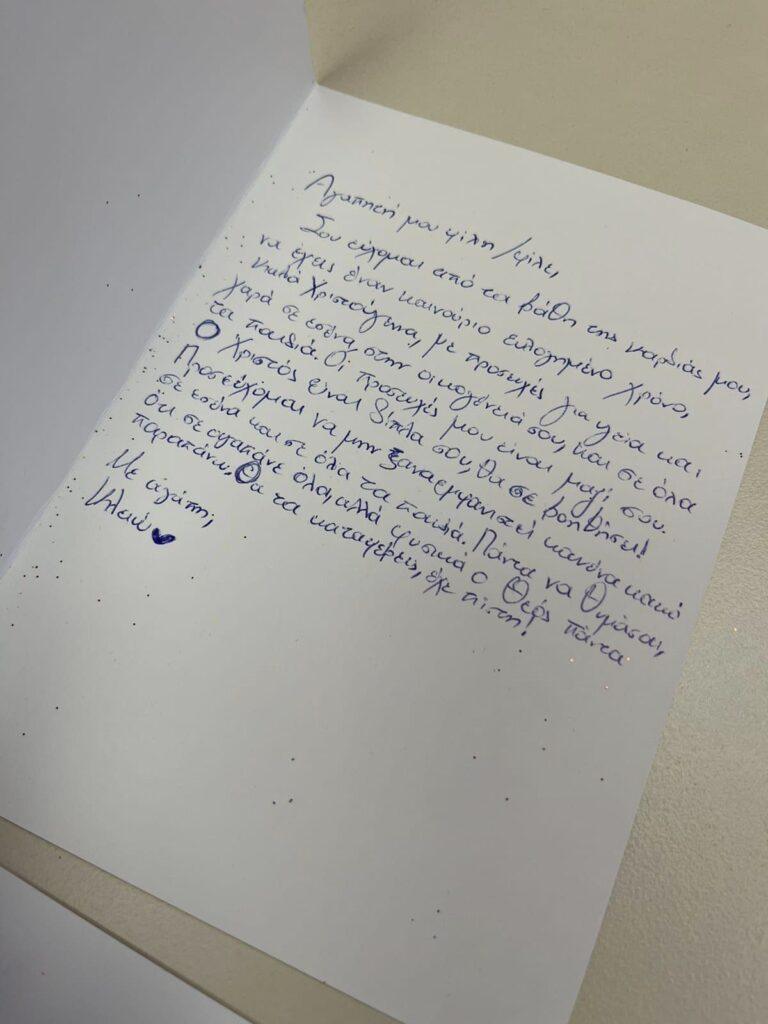 Αγαπητή μου φίλη /φίλε,
Σου εύχομαι από τα βάθη της καρδιάς μου,
να έχεις έναν καινούριο ευλογημένο χρόνο,
καλά Χριστούγενα, με προσευχές για υγεία και
χαρά σε εσένα, στην οικογένειά σου, και σε όλα
τα παιδιά. Οι προσευχές μου είναι μαζί σου.
Ο Χριστός είναι δίπλα σου, θα σε βοηθήσει!
Προσεύχομαι να μην ξαναεμφανιστεί κανένα κακό
σε εσένα και σε όλα τα παιδιά. Πάντα να θυμάσαι,
ότι σε αγαπάνε όλοι, αλλά φυσικά ο Θεός πάντα
παραπάνω. Θα τα καταφέρεις, έχε πίστη!
Με αγάπη,
Κλειώ